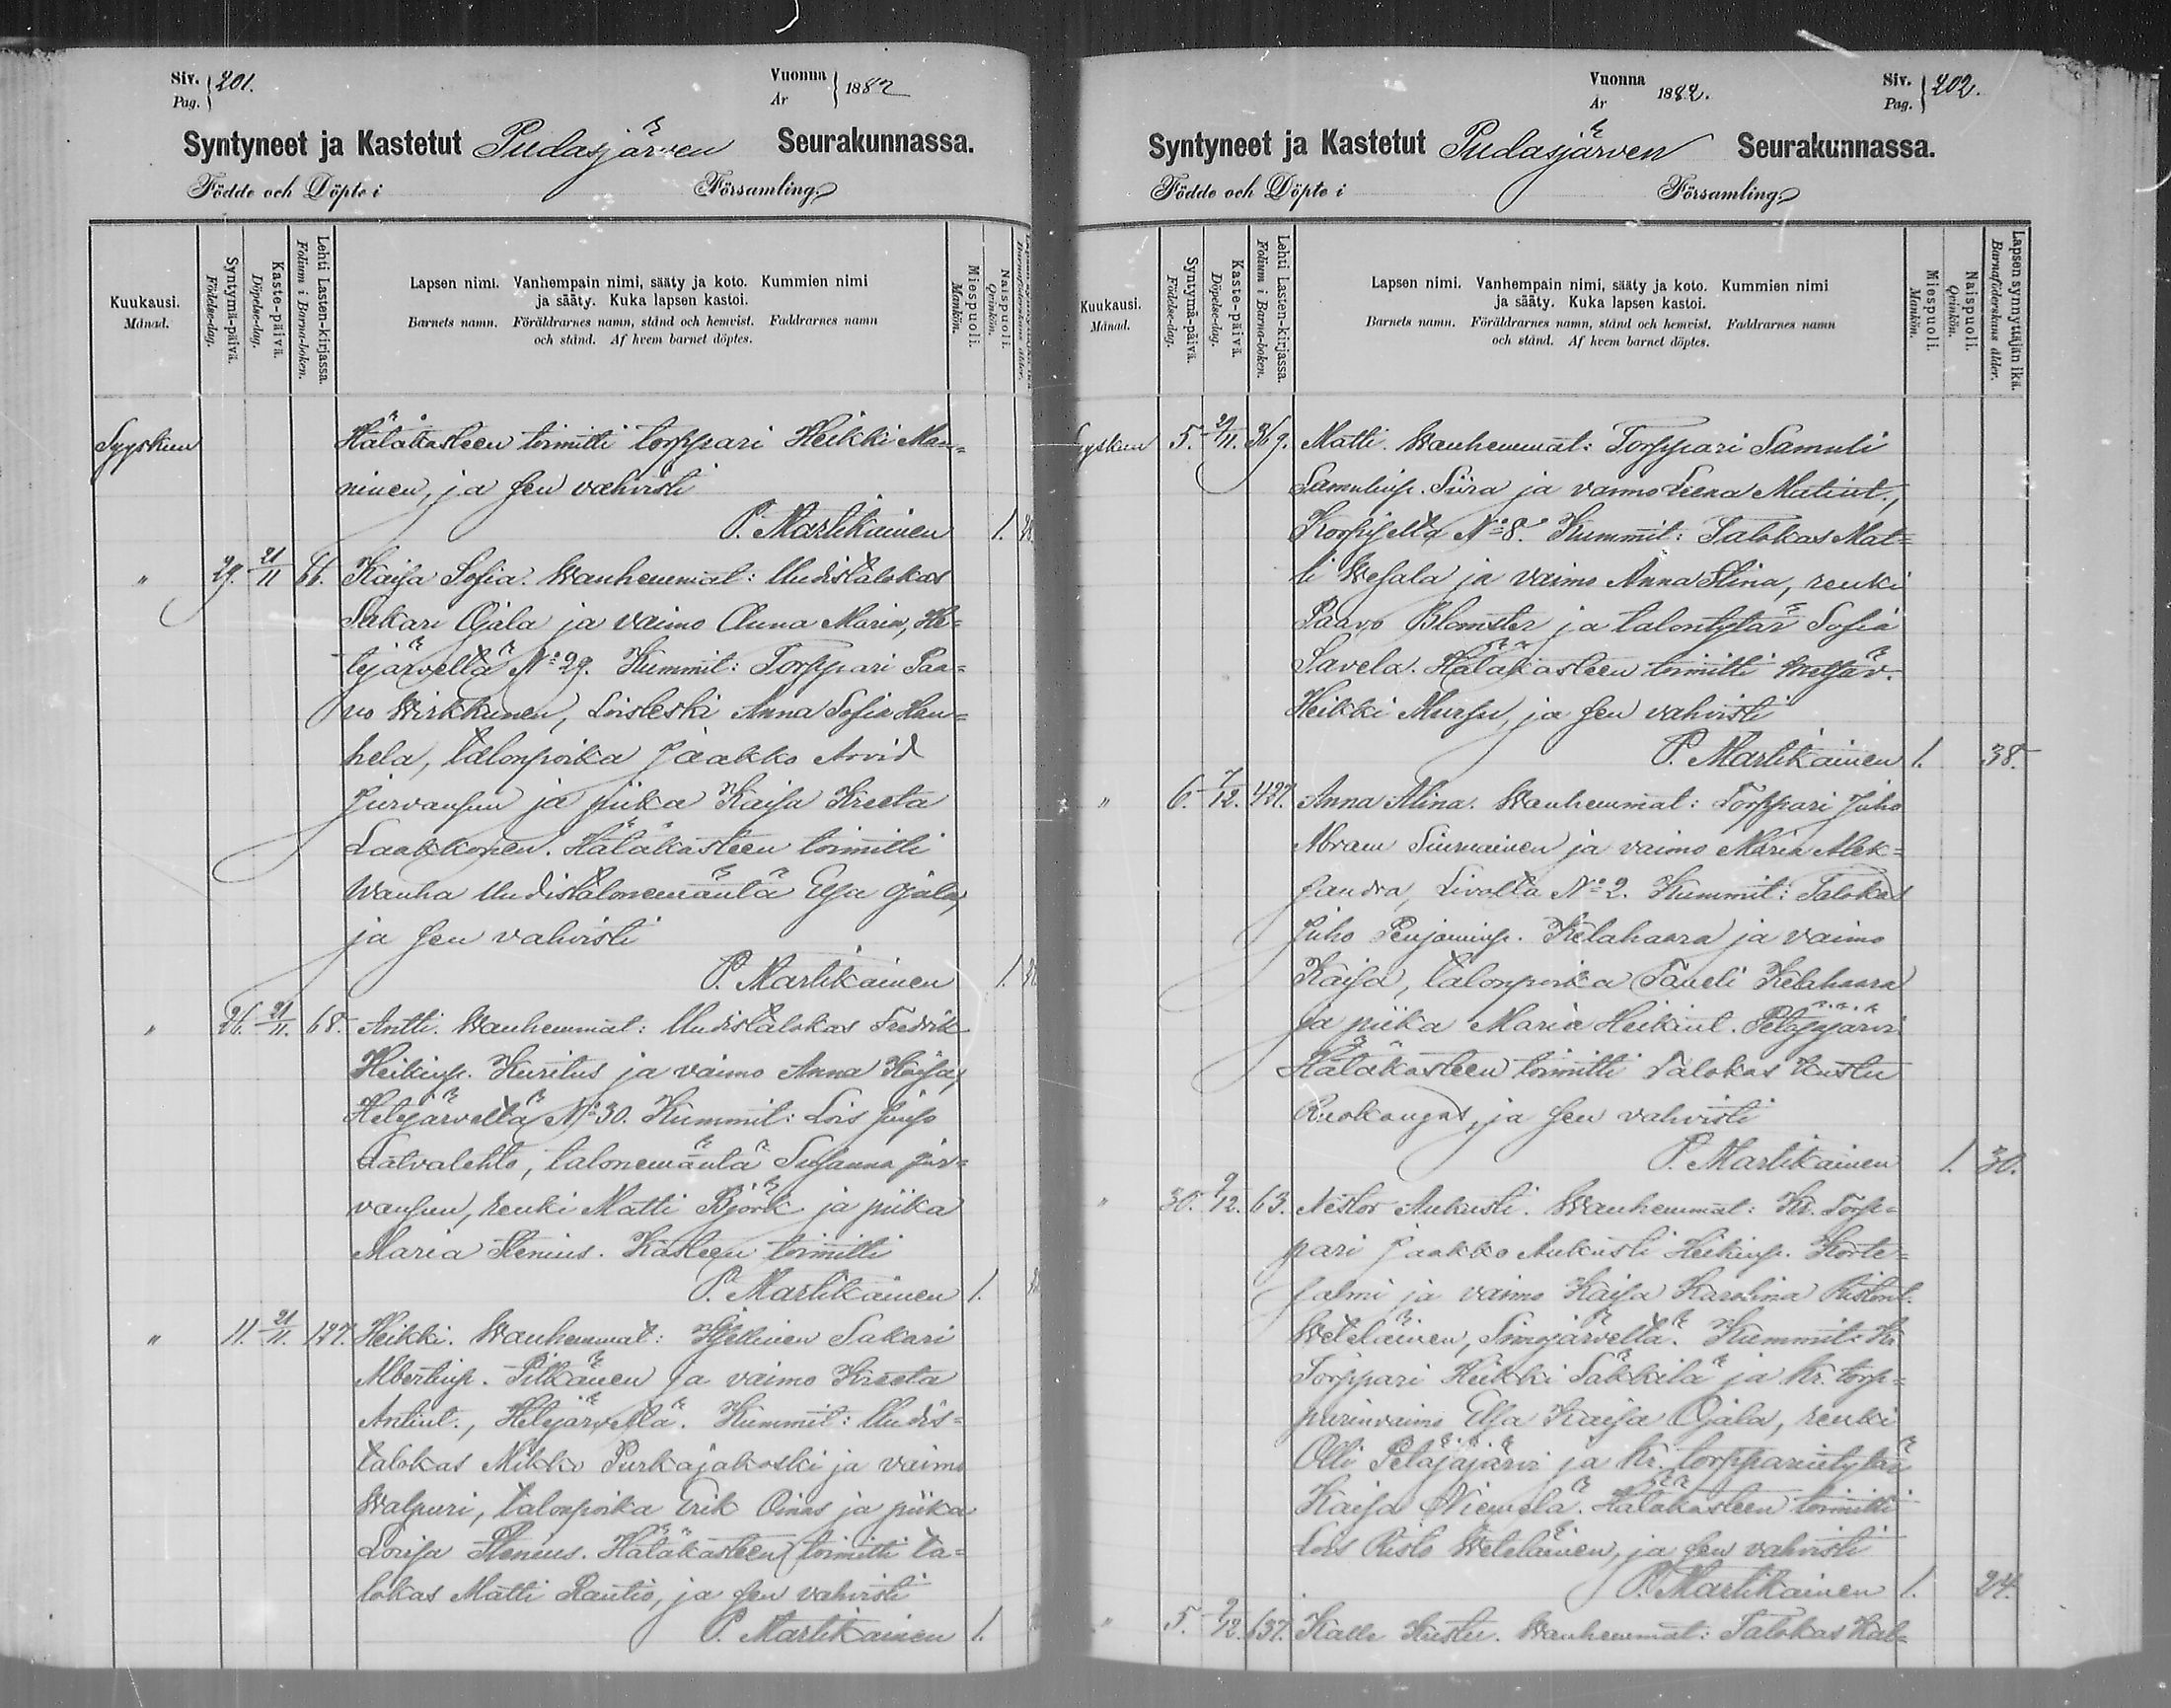 Siv. 201.
Pag.
Vuonna 1882
År
Syntyneet ja Kastetut Pudasjärven Seurakunnassa.
Födde och Döpte i Församling.
Kuukausi.
Månad.
Syntymä-päivä.
Födelse-dag.
Kaste-päivä.
Döpelse-dag.
Lehti Lasten-kirjassa.
Folium i Barna-boken.
Lapsen nimi. Vanhempain nimi, sääty ja koto. Kummien nimi
ja sääty. Kuka lapsen kastoi.
Barnets namn. Föräldrarnes namn, stånd och hemvist. Faddrarnes namn
och stånd. Af hvem barnet döptes.
Miespuoli.
Mankön.
Naispuoli.
Qvinkön.
Syyskuu Hätäkasteen toimitti torppari Heikki Man=
ninen, ja sen vahvisti
P. Martikainen 1.
" 29. 21/11 66. Kaisa Sofia. Wanhemmat: Uudistalokas
Sakari Ojala ja vaimo Anna Maria, He=
tejärveltä No 29. Kummit: Torppari Paa=
vo Wirkkunen, Loisleski Anna Sofia Han=
hela, talonpoika Jaakko Arvid
Jurvansuu ja piika Kaisa Kreeta
Laakkonen. Hätäkasteen toimitti
Wanha Uudistalonemäntä Elsa Ojala,
ja sen vahvisti
P. Martikainen 1.
" 26. 21/11. 68. Antti. Wanhemmat: Uudistalokas Fredrik
Heikinp. Kuritus ja vaimo Anna Kaisa,
Hetejärveltä No 30. Kummit: Lois Juho
Latvalehto, talonemäntä Susanna Jur=
vansuu, renki Matti Björk ja piika
Maria Stenius. Kasteen toimitti
P. Martikainen 1.
" 11. 21/11. 127. Heikki. Wanhemmat: Itsellinen Sakari
Albertinp. Pitkänen ja vaimo Kreeta
Antint., Hetejärveltä. Kummit: Uudis=
talokas Mikko Purkajakoski ja vaimo
Walpuri, talonpoika Erik Oinas ja piika
Lovisa Stenius. Hätäkasteen toimitti ta=
lokas Matti Rautio, ja sen vahvisti
P. Martikainen 1.
Vuonna 1882.
År
Siv. 202.
Pag.
Syntyneet ja Kastetut Pudasjärven Seurakunnassa.
Födde och Döpte i Församling.
Kuukausi.
Månad.
Syntymä-päivä.
Födelse-dag.
Kaste-päivä.
Döpelse-dag.
Lehti Lasten-kirjassa.
Folium i Barna-boken.
Lapsen nimi. Vanhempain nimi, sääty ja koto. Kummien nimi
ja sääty. Kuka lapsen kastoi.
Barnets namn. Föräldrarnes namn, stånd och hemvist. Faddrarnes namn
och stånd. Af hvem barnet döptes.
Miespuoli.
Mankön.
Naispuoli.
Qvinkön.
Lapsen synnyttäjän ikä.
Barnaföderskans ålder.
yyskuu 5. 21/11. 369. Matti. Wanhemmat: Torppari Samuli
Samulinp. Siira ja vaimo Leena Matint.,
Korpijeltä No 8. Kummit: Talokas Mat=
ti Wesala ja vaimo Anna Stina, renki
Paavo Blomster ja talontytär Sofia
Savela. Hätäkasteen toimitti metsäv.
Heikki Mursu, ja sen vahvisti
P. Martikainen 1. 38.
" 6. 7/12. 427. Anna Alina. Wanhemmat: Torppari Juho
Abram Siurnainen ja vaimo Maria Alek=
sandra, Livolta No 2. Kummit: Talokas
Juho Penjaminp. Kelahaara ja vaimo
Kaisa, talonpoika Taneli Kelahaara
ja piika Maria Heikint. Petäjäjärvi.
Hätäkasteen toimitti Talokas Kustu
Ruokangas, ja sen vahvisti
P. Martikainen 1. 30.
" 30. 9/12. 63. Nestor Aukusti. Wanhemmat: Kr. Torp=
pari Jaakko Aukusti Heikinp. Korte=
salmi ja vaimo Kaisa Karolina Ristont.
Weteläinen, Simojärveltä. Kummit: Kr.
Torppari Heikki Säkkilä ja kr. torp=
parinvaimo Elsa Kaisa Ojala, renki
Olli Petäjäjärvi ja kr. torpparintytär
Kaisa Niemelä. Hätäkasteen toimitti
Lois Risto Weteläinen, ja sen vahvisti
P. Martikainen 1. 24.
" 5. 9/12. 637. Kalle Kustu. Wanhemmat: Talokas Kal=